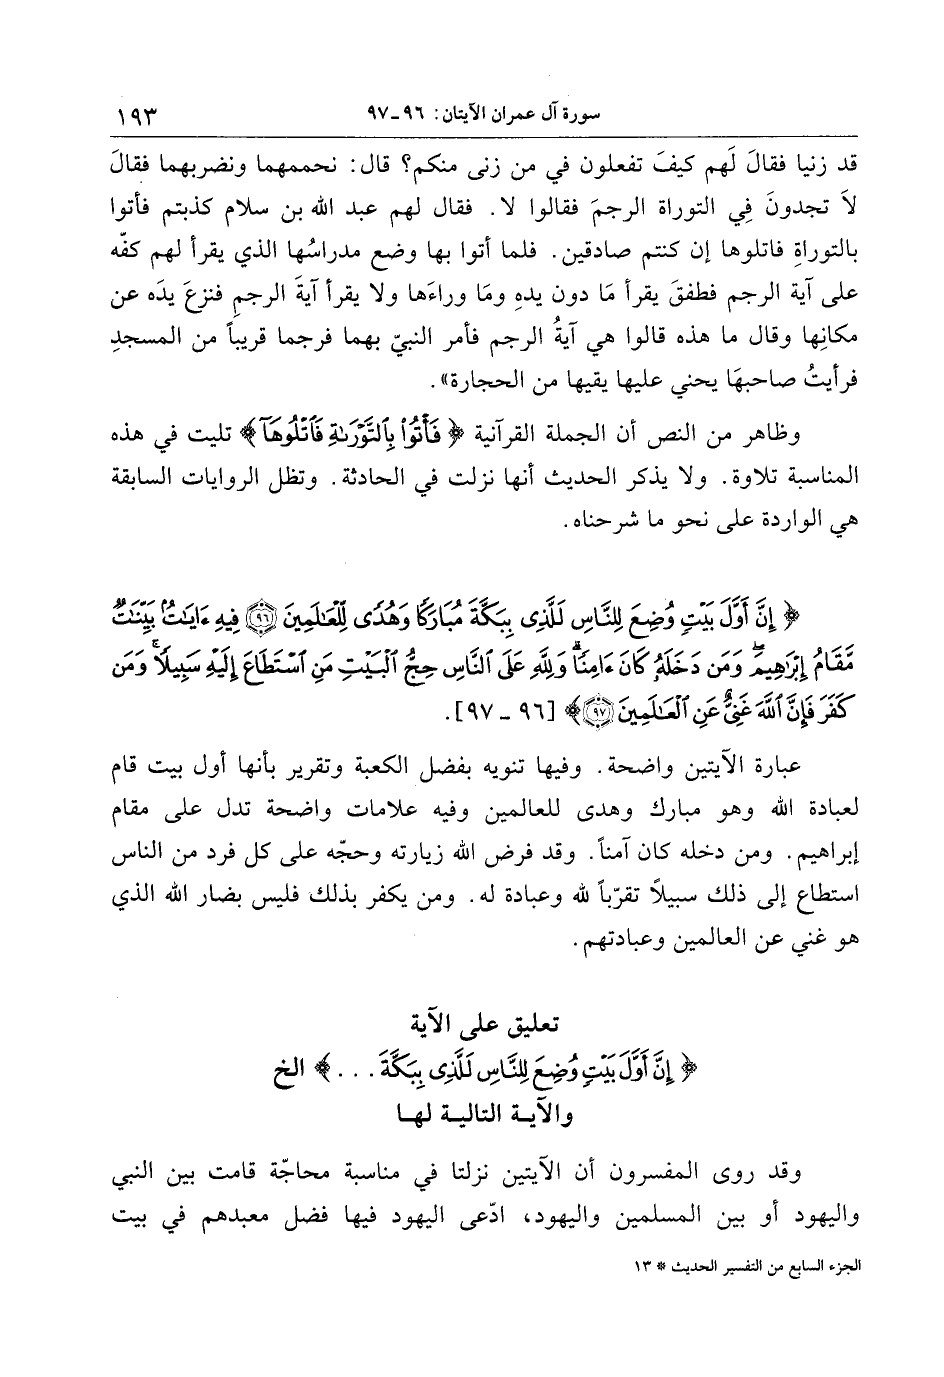 سورة آل عمران الآيتان: ٩٦ ـ ٩٧ ١٩٣
قد زنيا فقالَ لَهم كيفَ تفعلون في من زنى منكم؟ قال: نحممهما ونضربهما فقالَ
لاَ تجدونَ فِي التوراة الرجمَ فقالوا لا. فقال لهم عبد الله بن سلام كذبتم فأتوا
بالتوراةِ فاتلوها إن كنتم صادقين. فلما أتوا بها وضع مدراسُها الذي يقرأ لهم كفّه
على آية الرجم فطفقَ يقرأ مَا دون يدهِ ومَا وراءَها ولا يقرأ آيةَ الرجمِ فنزعَ يدَه عن
مكانِها وقال ما هذه قالوا هي آيةُ الرجم فأمر النبيّ بهما فرجما قريباً من المسجدِ
فرأيتُ صاحبهَا يحني عليها يقيها من الحجارة».
وظاهر من النص أن الجملة القرآنية ﴿ فَأْتُوا۟ بِٱلتَّوْرَىٰةِ فَٱتْلُوهَآ ﴾ تليت في هذه
المناسبة تلاوة. ولا يذكر الحديث أنها نزلت في الحادثة. وتظل الروايات السابقة
هي الواردة على نحو ما شرحناه.
﴿ إِنَّ أَوَّلَ بَيْتٍ وُضِعَ لِلنَّاسِ لَلَّذِى بِبَكَّةَ مُبَارَكًا وَهُدًى لِّلْعَـٰلَمِينَ ٩٦ فِيهِ ءَايَـٰتٌۢ بَيِّنَـٰتٌ
مَّقَامُ إِبْرَٰهِيمَ ۖ وَمَن دَخَلَهُۥ كَانَ ءَامِنًا ۗ وَلِلَّهِ عَلَى ٱلنَّاسِ حِجُّ ٱلْبَيْتِ مَنِ ٱسْتَطَاعَ إِلَيْهِ سَبِيلًا ۚ وَمَن
كَفَرَ فَإِنَّ ٱللَّهَ غَنِىٌّ عَنِ ٱلْعَـٰلَمِينَ ٩٧ ﴾ [٩٦ ـ ٩٧].
عبارة الآيتين واضحة. وفيها تنويه بفضل الكعبة وتقرير بأنها أول بيت قام
لعبادة الله وهو مبارك وهدى للعالمين وفيه علامات واضحة تدل على مقام
إبراهيم. ومن دخله كان آمناً. وقد فرض الله زيارته وحجّه على كل فرد من الناس
استطاع إلى ذلك سبيلاً تقرّباً لله وعبادة له. ومن يكفر بذلك فليس بضار الله الذي
هو غني عن العالمين وعبادتهم.
تعليق على الآية
﴿ إِنَّ أَوَّلَ بَيْتٍ وُضِعَ لِلنَّاسِ لَلَّذِى بِبَكَّةَ . . . ﴾ الخ
والآيـة التاليـة لهـا
وقد روى المفسرون أن الآيتين نزلتا في مناسبة محاجّة قامت بين النبي
واليهود أو بين المسلمين واليهود، ادّعى اليهود فيها فضل معبدهم في بيت
الجزء السابع من التفسير الحديث * ١٣